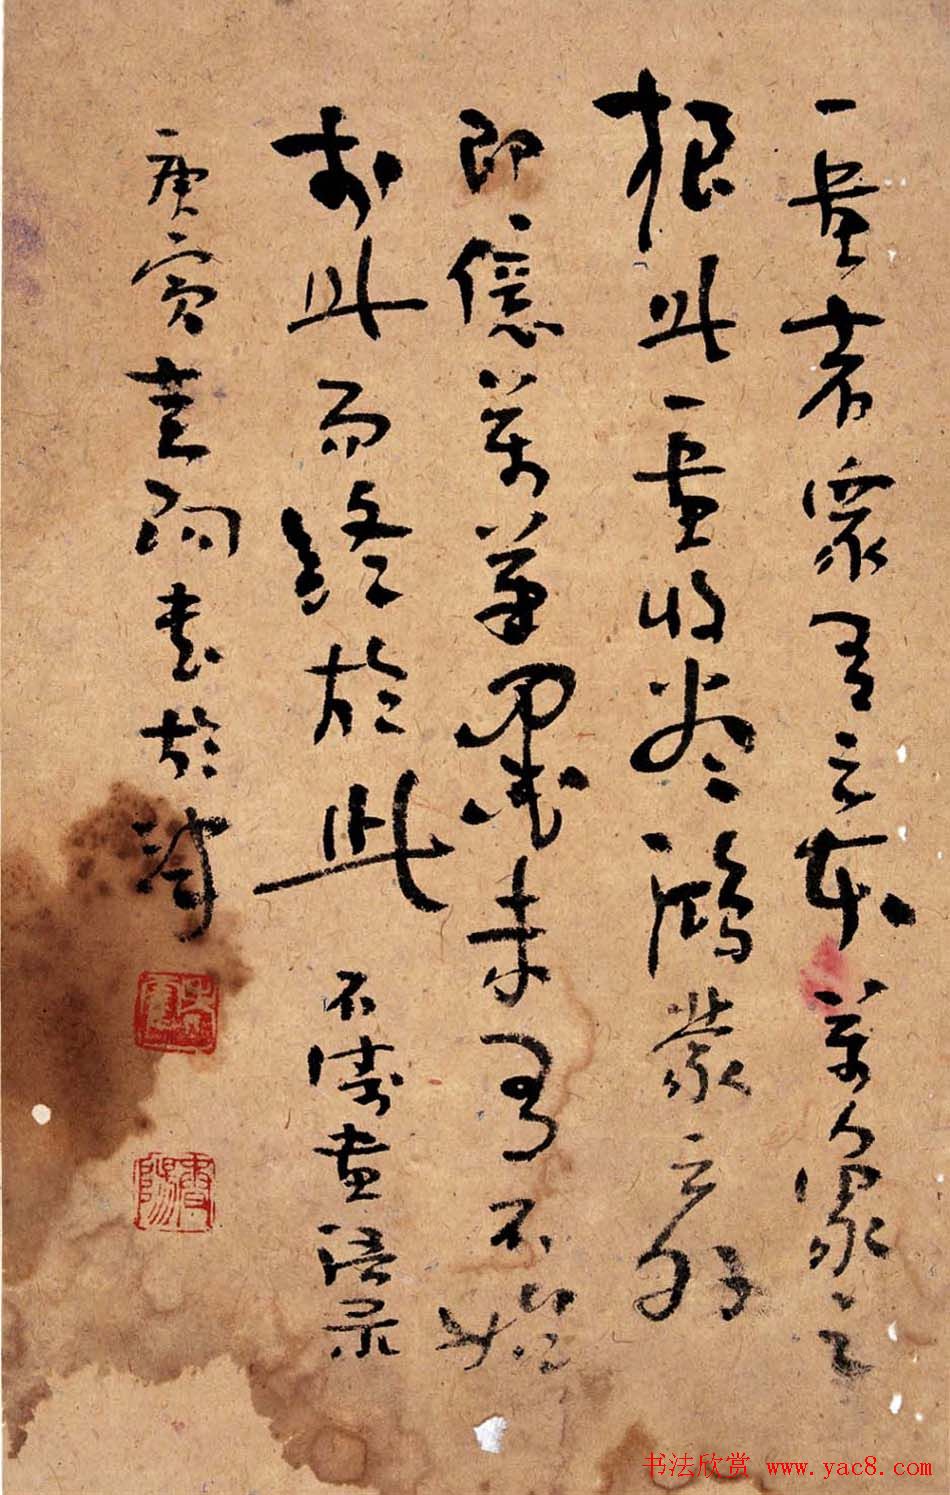 一畫者眾有之本萬象之
根此一畫收盡鴻蒙之外
即億萬筆墨未有不始
於此而終於此
石濤畫語录
庚寅 書於
书法欣赏 www.yac8.com